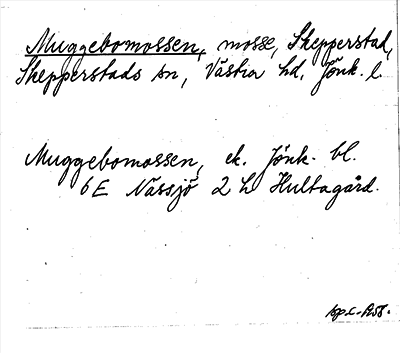 Muggebomossen, mosse, Skepperstad,
Skepperstads sn, Västra hd, Jönk. l.
Muggebomossen, ek. Jönk. bl.
6E Nässjö 2 h Hultagård.